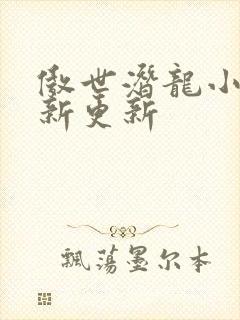 傲世潛龍小
新更新
飄蕩墨尔本